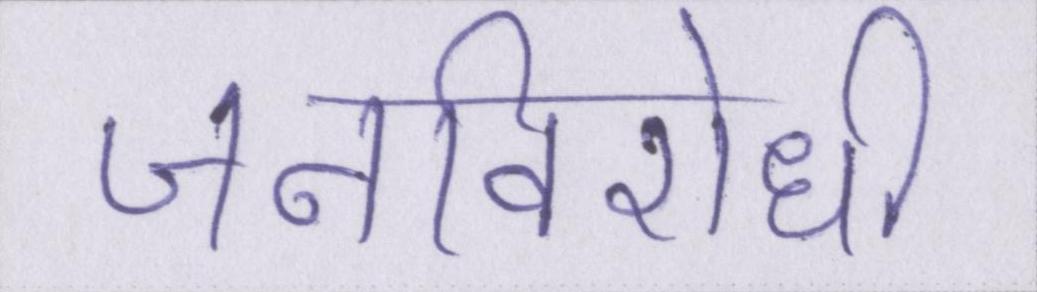 जनविरोधी